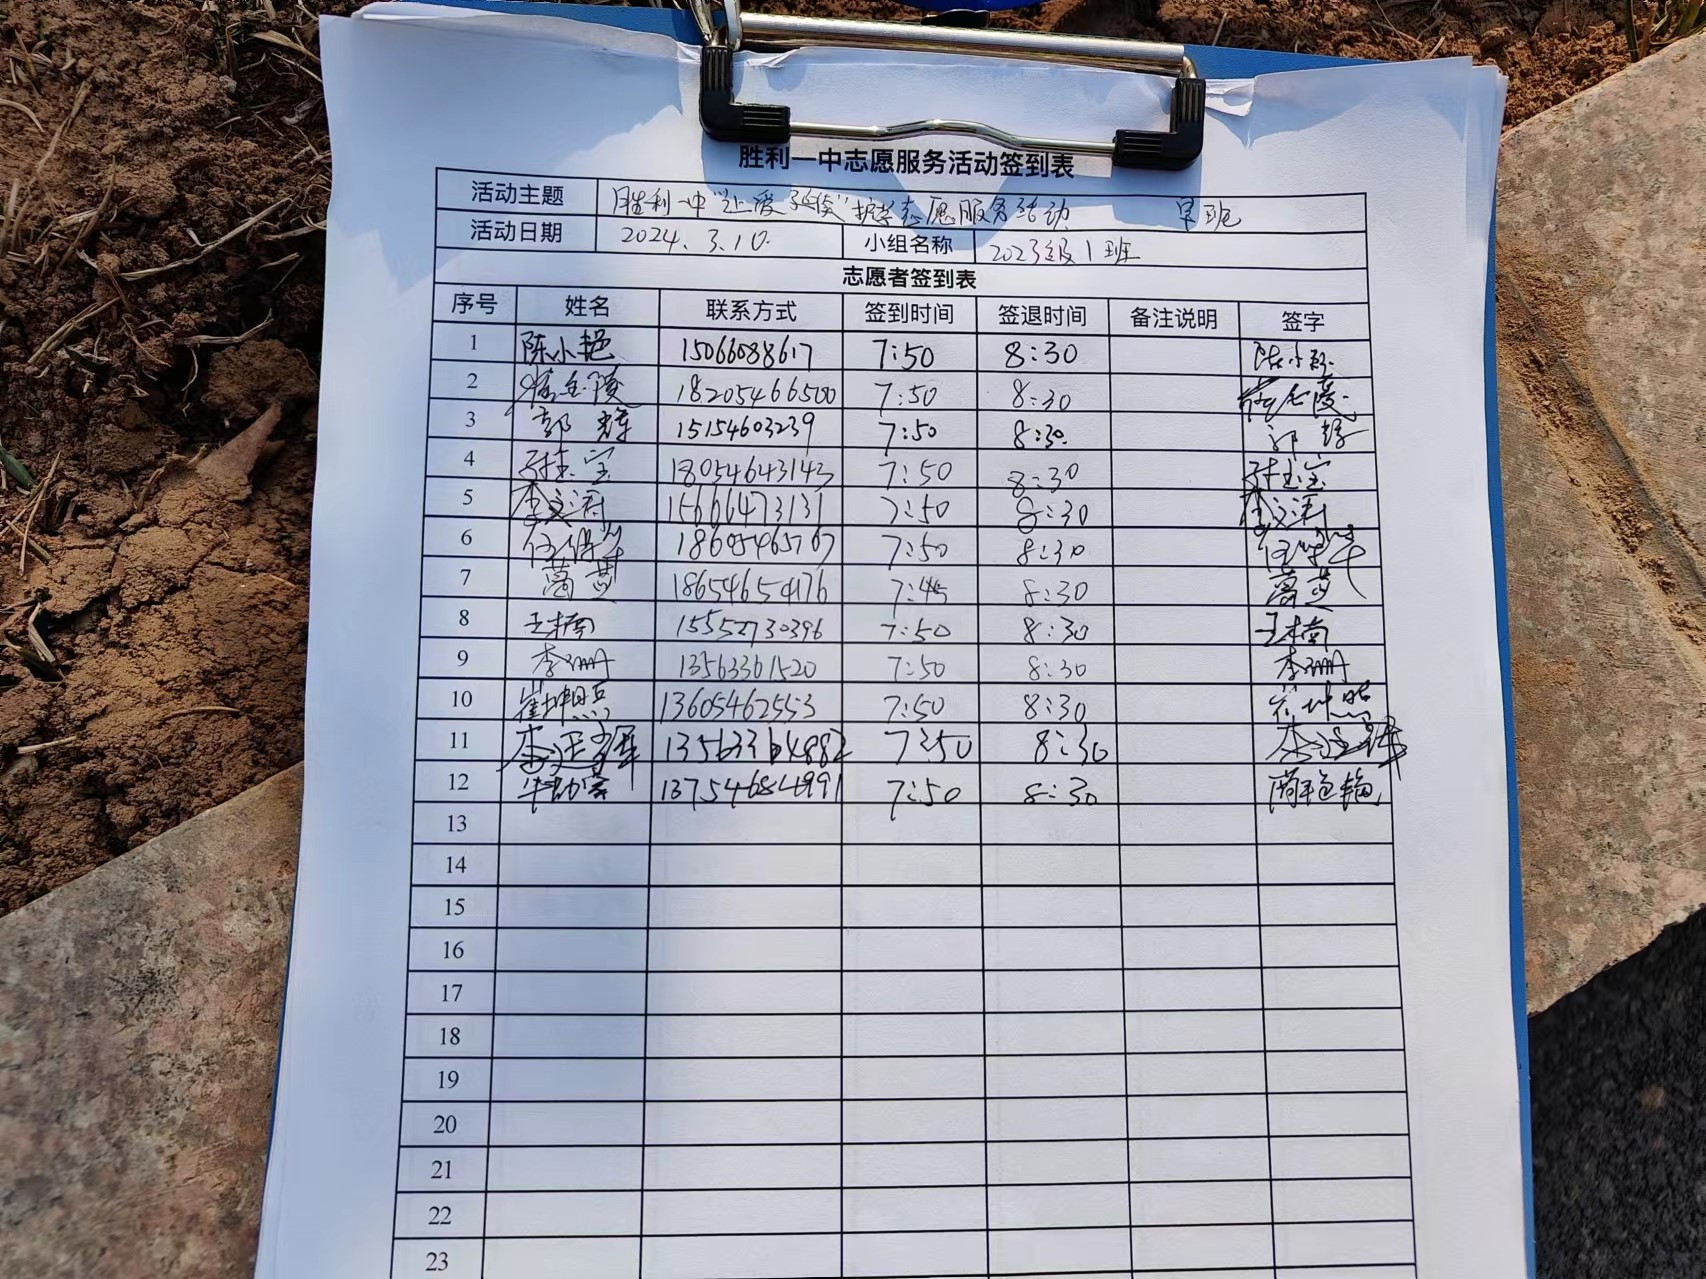 胜利一中志愿服务活动签到表
活动主题 胜利一中"让爱延续"护学志愿服务活动 早班
活动日期 2024.3.10. 小组名称 2023级1班
志愿者签到表
序号 姓名 联系方式 签到时间 签退时间 备注说明 签字
1 陈小艳 15066088617 7:50 8:30 陈小艳
2 18205466500 7:50 8:30
3 郭辉 15154603239 7:50 8:30 郭辉
4 宝 18054643143 7:50 8:30 宝
5 李文涛 15666473131 7:50 8:30 李文涛
6 任 18605465767 7:50 8:30 任
7 18654654176 7:45 8:30
8 王楠 15552730396 7:50 8:30 王楠
9 李珊 13563361520 7:50 8:30 李珊
10 崔坤照 13605462553 7:50 8:30 崔坤照
11 李 7:50 8:30 李
12 13754684991 7:50 8:30
13
14
15
16
17
18
19
20
21
22
23